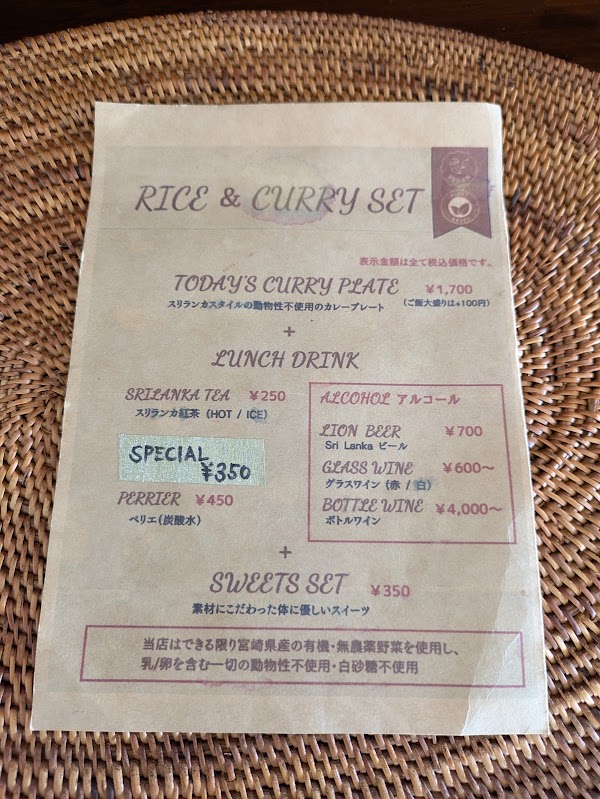 RICE & CURRY SET
表示金額は全て税込価格です。
TODAY'S CURRY PLATE ¥1,700
スリランカスタイルの動物性不使用のカレープレート (ご飯大盛りは+100円)
+
LUNCH DRINK
SRILANKA TEA ¥250
スリランカ紅茶 (HOT / ICE)
SPECIAL
¥350
PERRIER ¥450
ペリエ(炭酸水)
ALCOHOL アルコール
LION BEER ¥700
Sri Lanka ビール
GLASS WINE ¥600〜
グラスワイン (赤 / 白)
BOTTLE WINE ¥4,000〜
ボトルワイン
+
SWEETS SET ¥350
素材にこだわった体に優しいスイーツ
当店はできる限り宮崎県産の有機・無農薬野菜を使用し、
乳/卵を含む一切の動物性不使用・白砂糖不使用